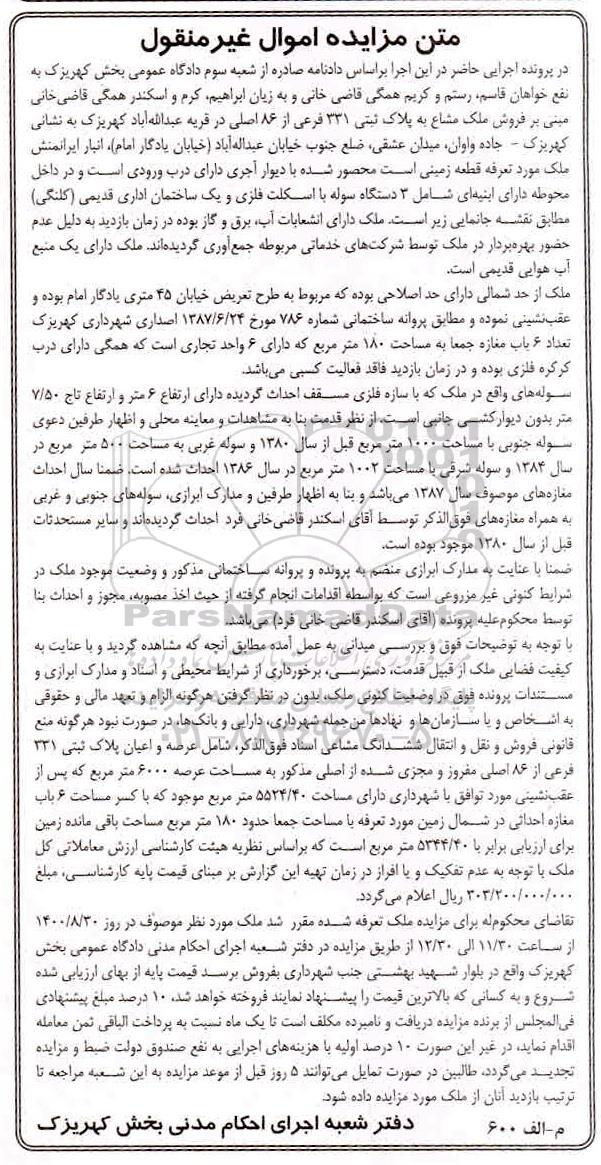 متن مزایده اموال غیرمنقول
در پرونده اجرایی حاضر در این اجرا براساس دادنامه صادره از شعبه سوم دادگاه عمومی بخش کهریزک به
نفع خواهان قاسم، رستم و کریم همگی قاضی خانی و به زیان ابراهیم، کرم و اسکندر همگی قاضی‌خانی
مبنی بر فروش ملک مشاع به پلاک ثبتی ۳۳۱ فرعی از ۸۶ اصلی در قریه عبدالله‌آباد کهریزک به نشانی
کهریزک - جاده واوان، میدان عشقی، ضلع جنوب خیابان عبداله‌آباد (خیابان یادگار امام)، انبار ایرانمنش
ملک مورد تعرفه قطعه زمینی است محصور شده با دیوار آجری دارای درب ورودی است و در داخل
محوطه دارای ابنیه‌ای شامل ۳ دستگاه سوله با اسکلت فلزی و یک ساختمان اداری قدیمی (کلنگی)
مطابق نقشه جانمایی زیر است. ملک دارای انشعابات آب، برق و گاز بوده در زمان بازدید به دلیل عدم
حضور بهره‌بردار در ملک توسط شرکت‌های خدماتی مربوطه جمع‌آوری گردیده‌اند. ملک دارای یک منبع
آب هوایی قدیمی است.
ملک از حد شمالی دارای حد اصلاحی بوده که مربوط به طرح تعریض خیابان ۴۵ متری یادگار امام بوده و
عقب‌نشینی نموده و مطابق پروانه ساختمانی شماره ۷۸۶ مورخ ۱۳۸۷/۶/۲۴ اصداری شهرداری کهریزک
تعداد ۶ باب مغازه جمعا به مساحت ۱۸۰ متر مربع که دارای ۶ واحد تجاری است که همگی دارای درب
کرکره فلزی بوده و در زمان بازدید فاقد فعالیت کسبی می‌باشد.
سوله‌های واقع در ملک که با سازه فلزی مسقف احداث گردیده دارای ارتفاع ۶ متر و ارتفاع تاج ۷/۵۰
متر بدون دیوارکشی جانبی است. از نظر قدمت بنا به مشاهدات و معاینه محلی و اظهار طرفین دعوی
سوله جنوبی با مساحت ۱۰۰۰ متر مربع قبل از سال ۱۳۸۰ و سوله غربی به مساحت ۵۰۰ متر مربع در
سال ۱۳۸۴ و سوله شرقی با مساحت ۱۰۰۲ متر مربع در سال ۱۳۸۶ احداث شده است. ضمنا سال احداث
مغازه‌های موصوف سال ۱۳۸۷ می‌باشد و بنا به اظهار طرفین و مدارک ابرازی، سوله‌های جنوبی و غربی
به همراه مغازه‌های فوق‌الذکر توسط آقای اسکندر قاضی‌خانی فرد احداث گردیده‌اند و سایر مستحدثات
قبل از سال ۱۳۸۰ موجود بوده است.
ضمنا با عنایت به مدارک ابرازی منضم به پرونده و پروانه ساختمانی مذکور و وضعیت موجود ملک در
شرایط کنونی غیر مزروعی است که بواسطه اقدامات انجام گرفته از حیث اخذ مصوبه، مجوز و احداث بنا
توسط محکوم‌علیه پرونده (آقای اسکندر قاضی خانی فرد) می‌باشد.
با توجه به توضیحات فوق و بررسی میدانی به عمل آمده مطابق آنچه که مشاهده گردید و با عنایت به
کیفیت فضایی ملک از قبیل قدمت، دسترسی، برخورداری از شرایط محیطی و اسناد و مدارک ابرازی و
مستندات پرونده فوق و وضعیت کنونی ملک، بدون در نظر گرفتن هرگونه الزام و تعهد مالی و حقوقی
به اشخاص و یا سازمان‌ها و نهادها من‌جمله شهرداری، دارایی و بانک‌ها، در صورت نبود هرگونه منع
قانونی فروش و نقل و انتقال ششدانگ مشاعی اسناد فوق‌الذکر، شامل عرصه و اعیان پلاک ثبتی ۳۳۱
فرعی از ۸۶ اصلی مفروز و مجزی شده از اصلی مذکور به مساحت عرصه ۶۰۰۰ متر مربع که پس از
عقب‌نشینی مورد توافق با شهرداری دارای مساحت ۵۵۲۴/۴۰ متر مربع موجود که با کسر مساحت ۶ باب
مغازه احداثی در شمال زمین مورد تعرفه با مساحت جمعا حدود ۱۸۰ متر مربع مساحت باقی مانده زمین
برای ارزیابی برابر با ۵۳۴۴/۴۰ متر مربع است که براساس نظریه هیئت کارشناسی ارزش معاملاتی کل
ملک با توجه به عدم تفکیک و یا افراز در زمان تهیه این گزارش بر مبنای قیمت پایه کارشناسی، مبلغ
۳۰۳/۲۰۰/۰۰۰/۰۰۰ ریال اعلام می‌گردد.
تقاضای محکوم‌له برای مزایده ملک تعرفه شده مقرر شد ملک مورد نظر موصوف در روز ۱۴۰۰/۸/۳۰
از ساعت ۱۱/۳۰ الی ۱۲/۳۰ از طریق مزایده در دفتر شعبه اجرای احکام مدنی دادگاه عمومی بخش
کهریزک واقع در بلوار شهید بهشتی جنب شهرداری بفروش برسد قیمت پایه از بهای ارزیابی شده
شروع و به کسانی که بالاترین قیمت را پیشنهاد نمایند فروخته خواهد شد، ۱۰ درصد مبلغ پیشنهادی
فی‌المجلس از برنده مزایده دریافت و نامبرده مکلف است تا یک ماه نسبت به پرداخت الباقی ثمن معامله
اقدام نماید، در غیر این صورت ۱۰ درصد اولیه با هزینه‌های اجرایی به نفع صندوق دولت ضبط و مزایده
تجدید می‌گردد، طالبین در صورت تمایل می‌توانند ۵ روز قبل از موعد مزایده به این شعبه مراجعه تا
ترتیب بازدید آنان از ملک مورد مزایده داده شود.
م-الف ۶۰۰ دفتر شعبه اجرای احکام مدنی بخش کهریزک
ParsNamadData